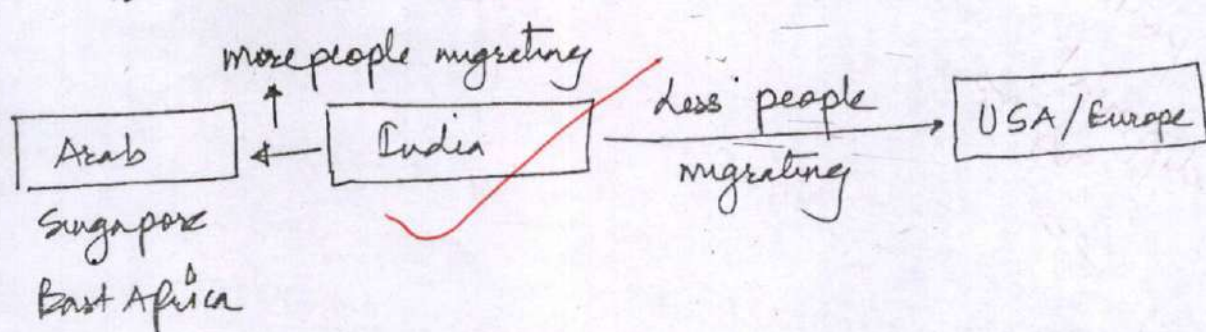 more people migrating
Arab
India
Less people
migrating
USA/Europe
Singapore
East Africa